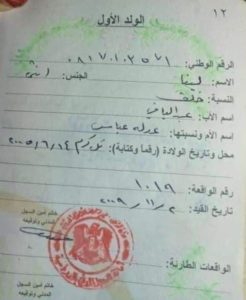 ١٢
الولد الأول
الرقم الوطني: ٠٨١٧٠١٠٢٥٧١
الاسم: لينا الجنس: انثى
النسبة: خلف
اسم الأب: عبد الباقي
اسم الأم ونسبتها: عدله عباس
محل وتاريخ الولادة (رقماً وكتابة): ٢٠٠٥/٦/١٤
رقم الواقعة: ١٠١٩
تاريخ القيد: ٢٠٠٩/١١/٢
خاتم أمين السجل
المدني وتوقيعه
الواقعات الطارئة:
خاتم أمين السجل
المدني وتوقيعه